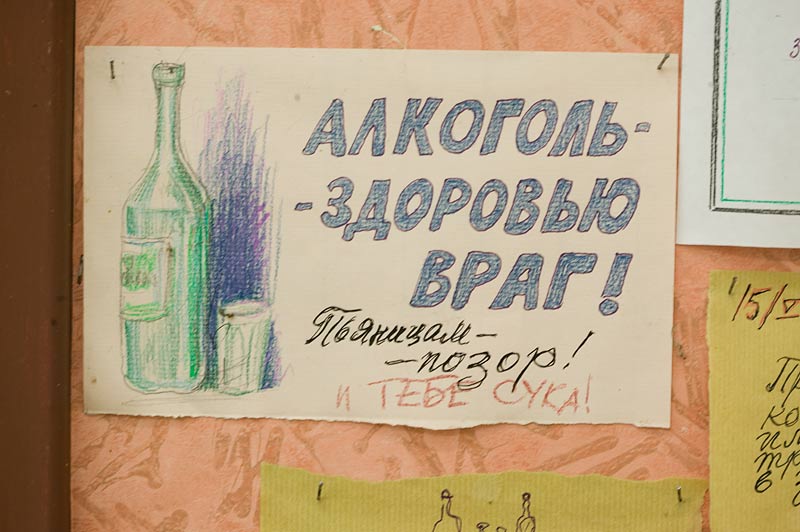 АЛКОГОЛЬ-
-ЗДОРОВЬЮ
ВРАГ!
Пьяницам-
-позор!
И ТЕБЕ СУКА!
15/V